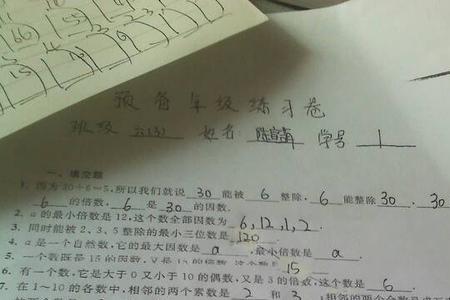 66 15 13
15 14 13
预备年级练习卷
班级 六(3) 姓名 学号 1
一、填空题
1. 因为30÷6=5,所以我们就说 30 能被 6 整除, 6 能整除 30 , 30
6 的倍数, 6 是 30 的因数.
2. a的最小倍数是12,这个数全部因数为 6,12,1,2 .
3. 同时能被2、3、5整除的最小三位数是 120
4. a是一个自然数,它的最大因数是 a ,最小倍数是 a .
5. 一个数既是15的因数,又是15的倍数,这个数是 15
6. 有一个数,它是大于0又小于10的偶数,又是3的倍数,这个数是 6 .
7. 在1~10的各数中,相邻的两个素数是 2 和 3 ,相邻的两个合数是